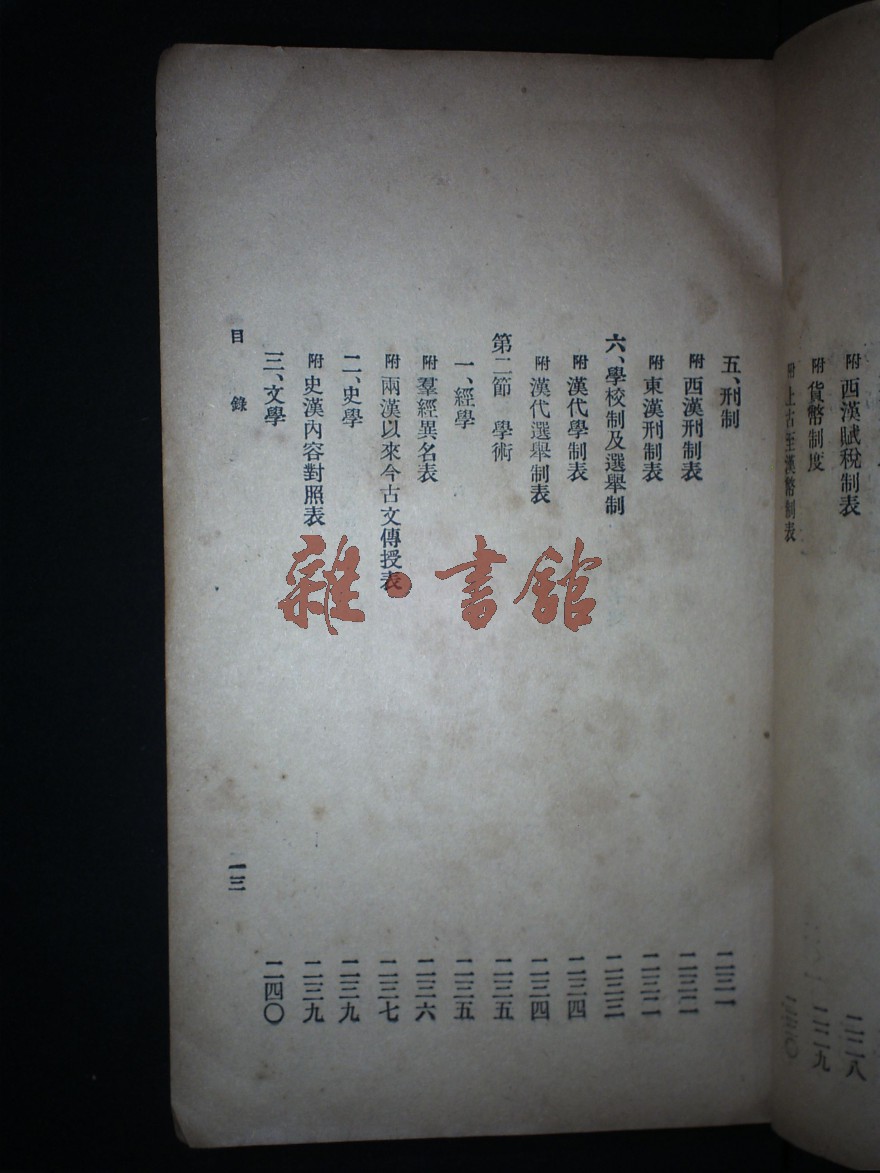 附 西漢賦稅制表 二二八
附 貨幣制度 二二九
附 上古至漢幣制表
五、刑制 二三一
附 西漢刑制表 二三二
附 東漢刑制表 二三二
六、學校制及選舉制 二三三
附 漢代學制表 二三四
附 漢代選舉制表 二三四
第二節 學術 二三五
一、經學 二三五
附 羣經異名表 二三六
附 兩漢以來今古文傳授表 二三七
二、史學 二三九
附 史漢內容對照表 二三九
三、文學 二四〇
目錄 一三
雜·書館